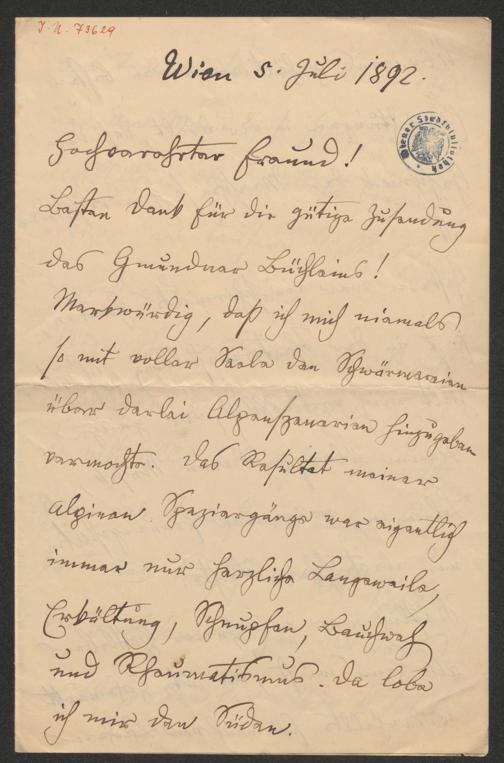 J. N. 73629
Wien 5. Juli 1892.
Wiener Stadtbibliothek
Hochverehrter Freund!
Besten Dank für die gütige Zusendung
des Gmundner Büchleins!
Merkwürdig, daß ich mich niemals
so mit voller Seele den Schwärmereien
über derlei Alpenszenerien hinzugeben
vermochte. Das Resultat meiner
alpinen Spaziergänge war eigentlich
immer nur herzliche Langeweile,
Erkältung, Schnupfen, Bauchweh
und Rheumatismus. Da lobe
ich mir den Süden.